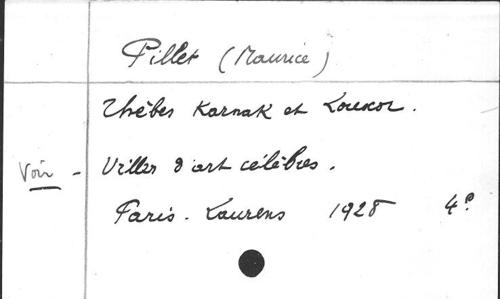 Pillet (Maurice)
Thèbes Karnak et Louxor.
Voir - Villes d'art célèbres.
Paris. Laurens 1928 4°